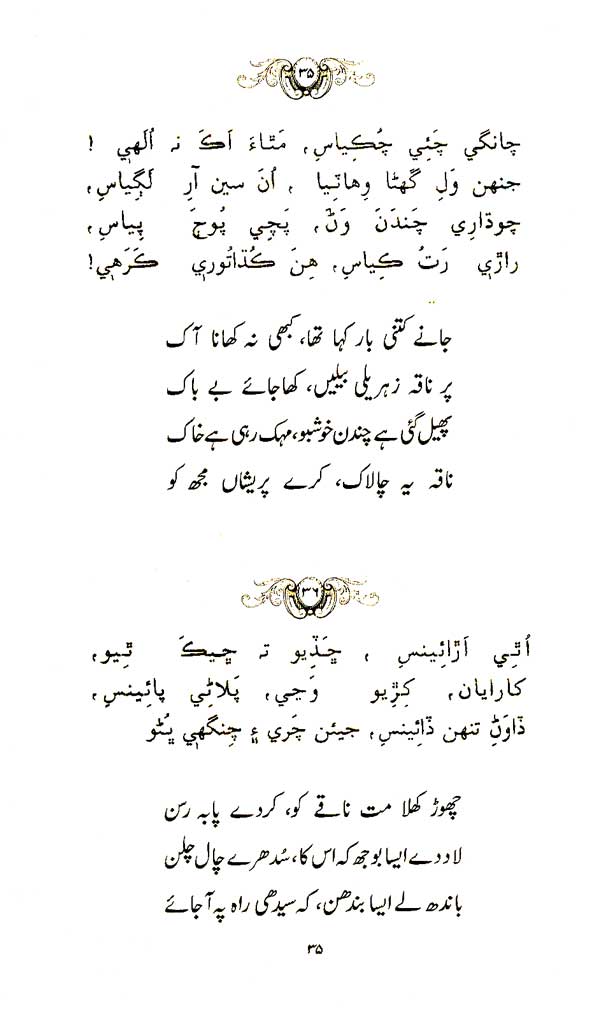 ۳۵
چانگي چَئِي چُڪِياسِ، مَٿاءَ اَڪَ نہ اُلَهي !
جنھن وَلِ گَھڻا وِهاٽِيا ، اُنَ سين آرِ لَڳِياسِ،
چوڌارِي چَندَنَ وَڻَ، پَچِي پُوڄَ پِياسِ،
راڙِي رَتُ ڪِياسِ، هِنَ ڪُڌاتُوري ڪَرَهي!
جانے کتنی بار کہا تھا، کبھی نہ کھانا آک
پر ناقہ زہریلی بیلیں، کھا جائے بے باک
پھیل گئی ہے چندن خوشبو، مہک رہی ہے خاک
ناقہ یہ چالاک، کرے پریشاں مجھ کو
۳۶
اُٿِي اَڙائِينسِ ، ڇَڏِيو تہ ڇيڪَ ٿِيو،
کارايان، کِڙِيو وَڃي، پَلاڻِي پائِينسِ،
ڏاوَڻِ تنھن ڏائِينسِ، جيئن چَري ۽ چِنگهي ڀُڻو
چھوڑ کھلا مت ناقے کو، کردے پابہ رسن
لاد دے ایسا بوجھ کہ اس کا، سُدھرے چال چلن
باندھ لے ایسا بندھن، کہ سیدھی راہ پہ آجائے
۳۵